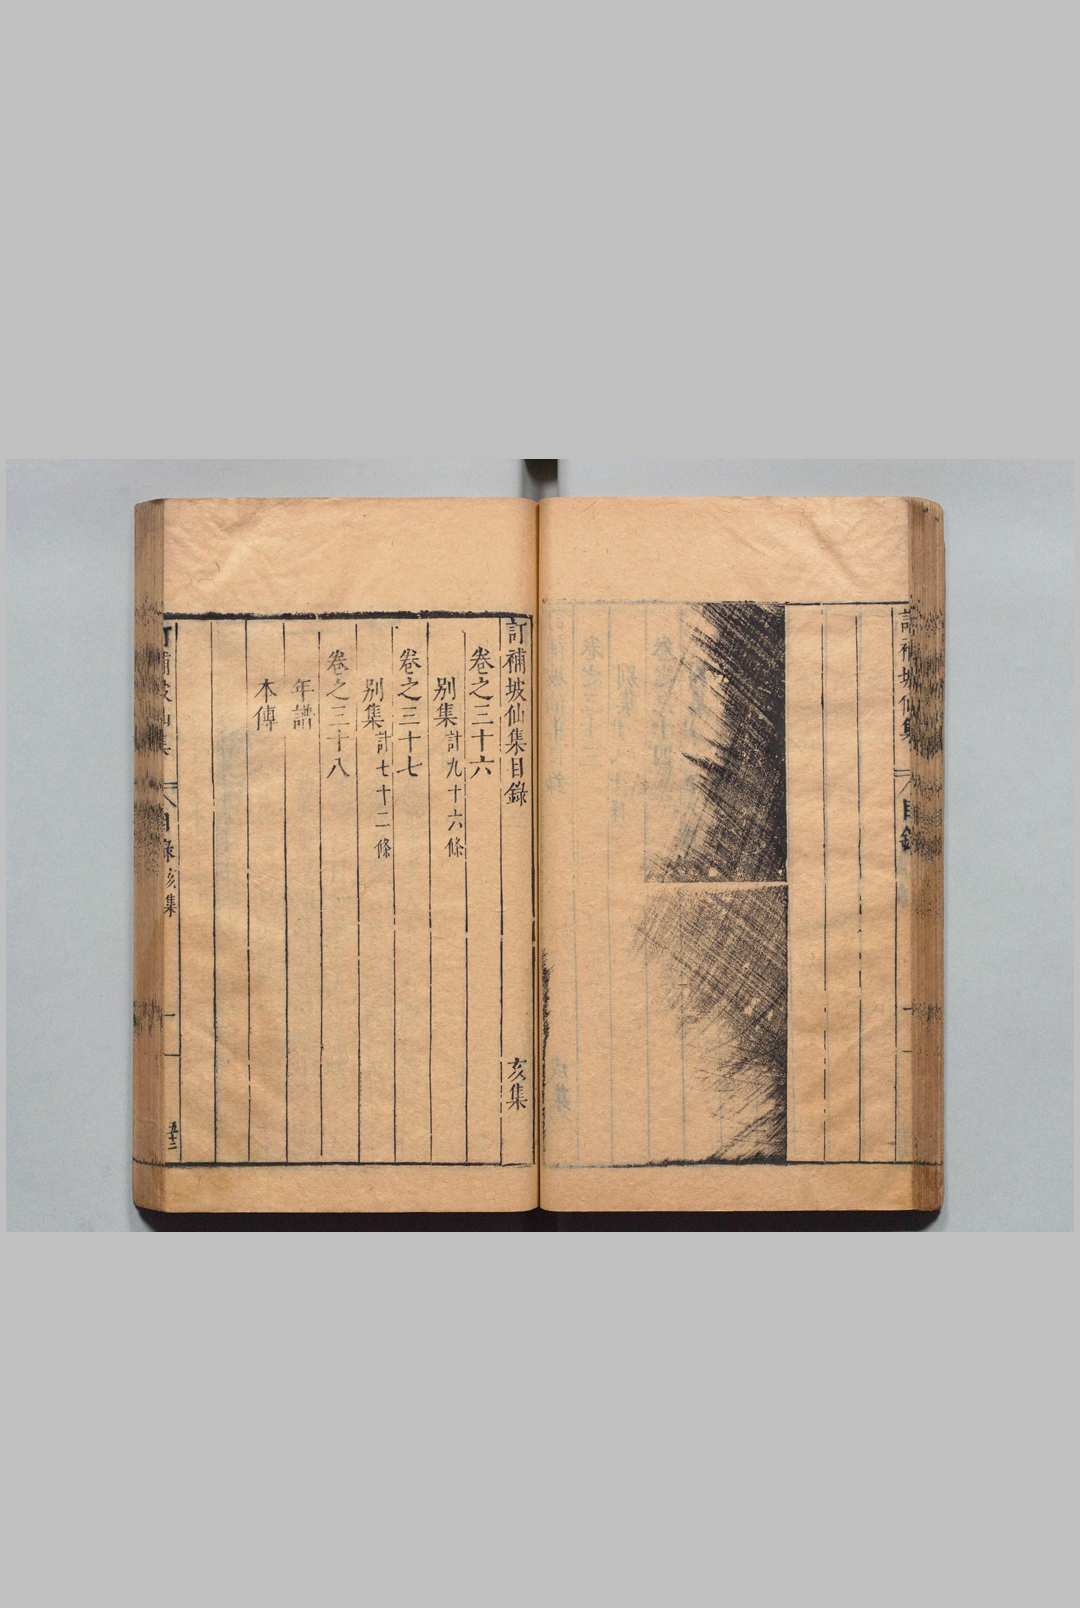 訂補坡仙集
目錄
訂補坡仙集目錄 亥集
卷之三十六
別集計九十六條
卷之三十七
別集計七十二條
卷之三十八
年譜
本傳
訂補坡仙集 目錄 亥集 一